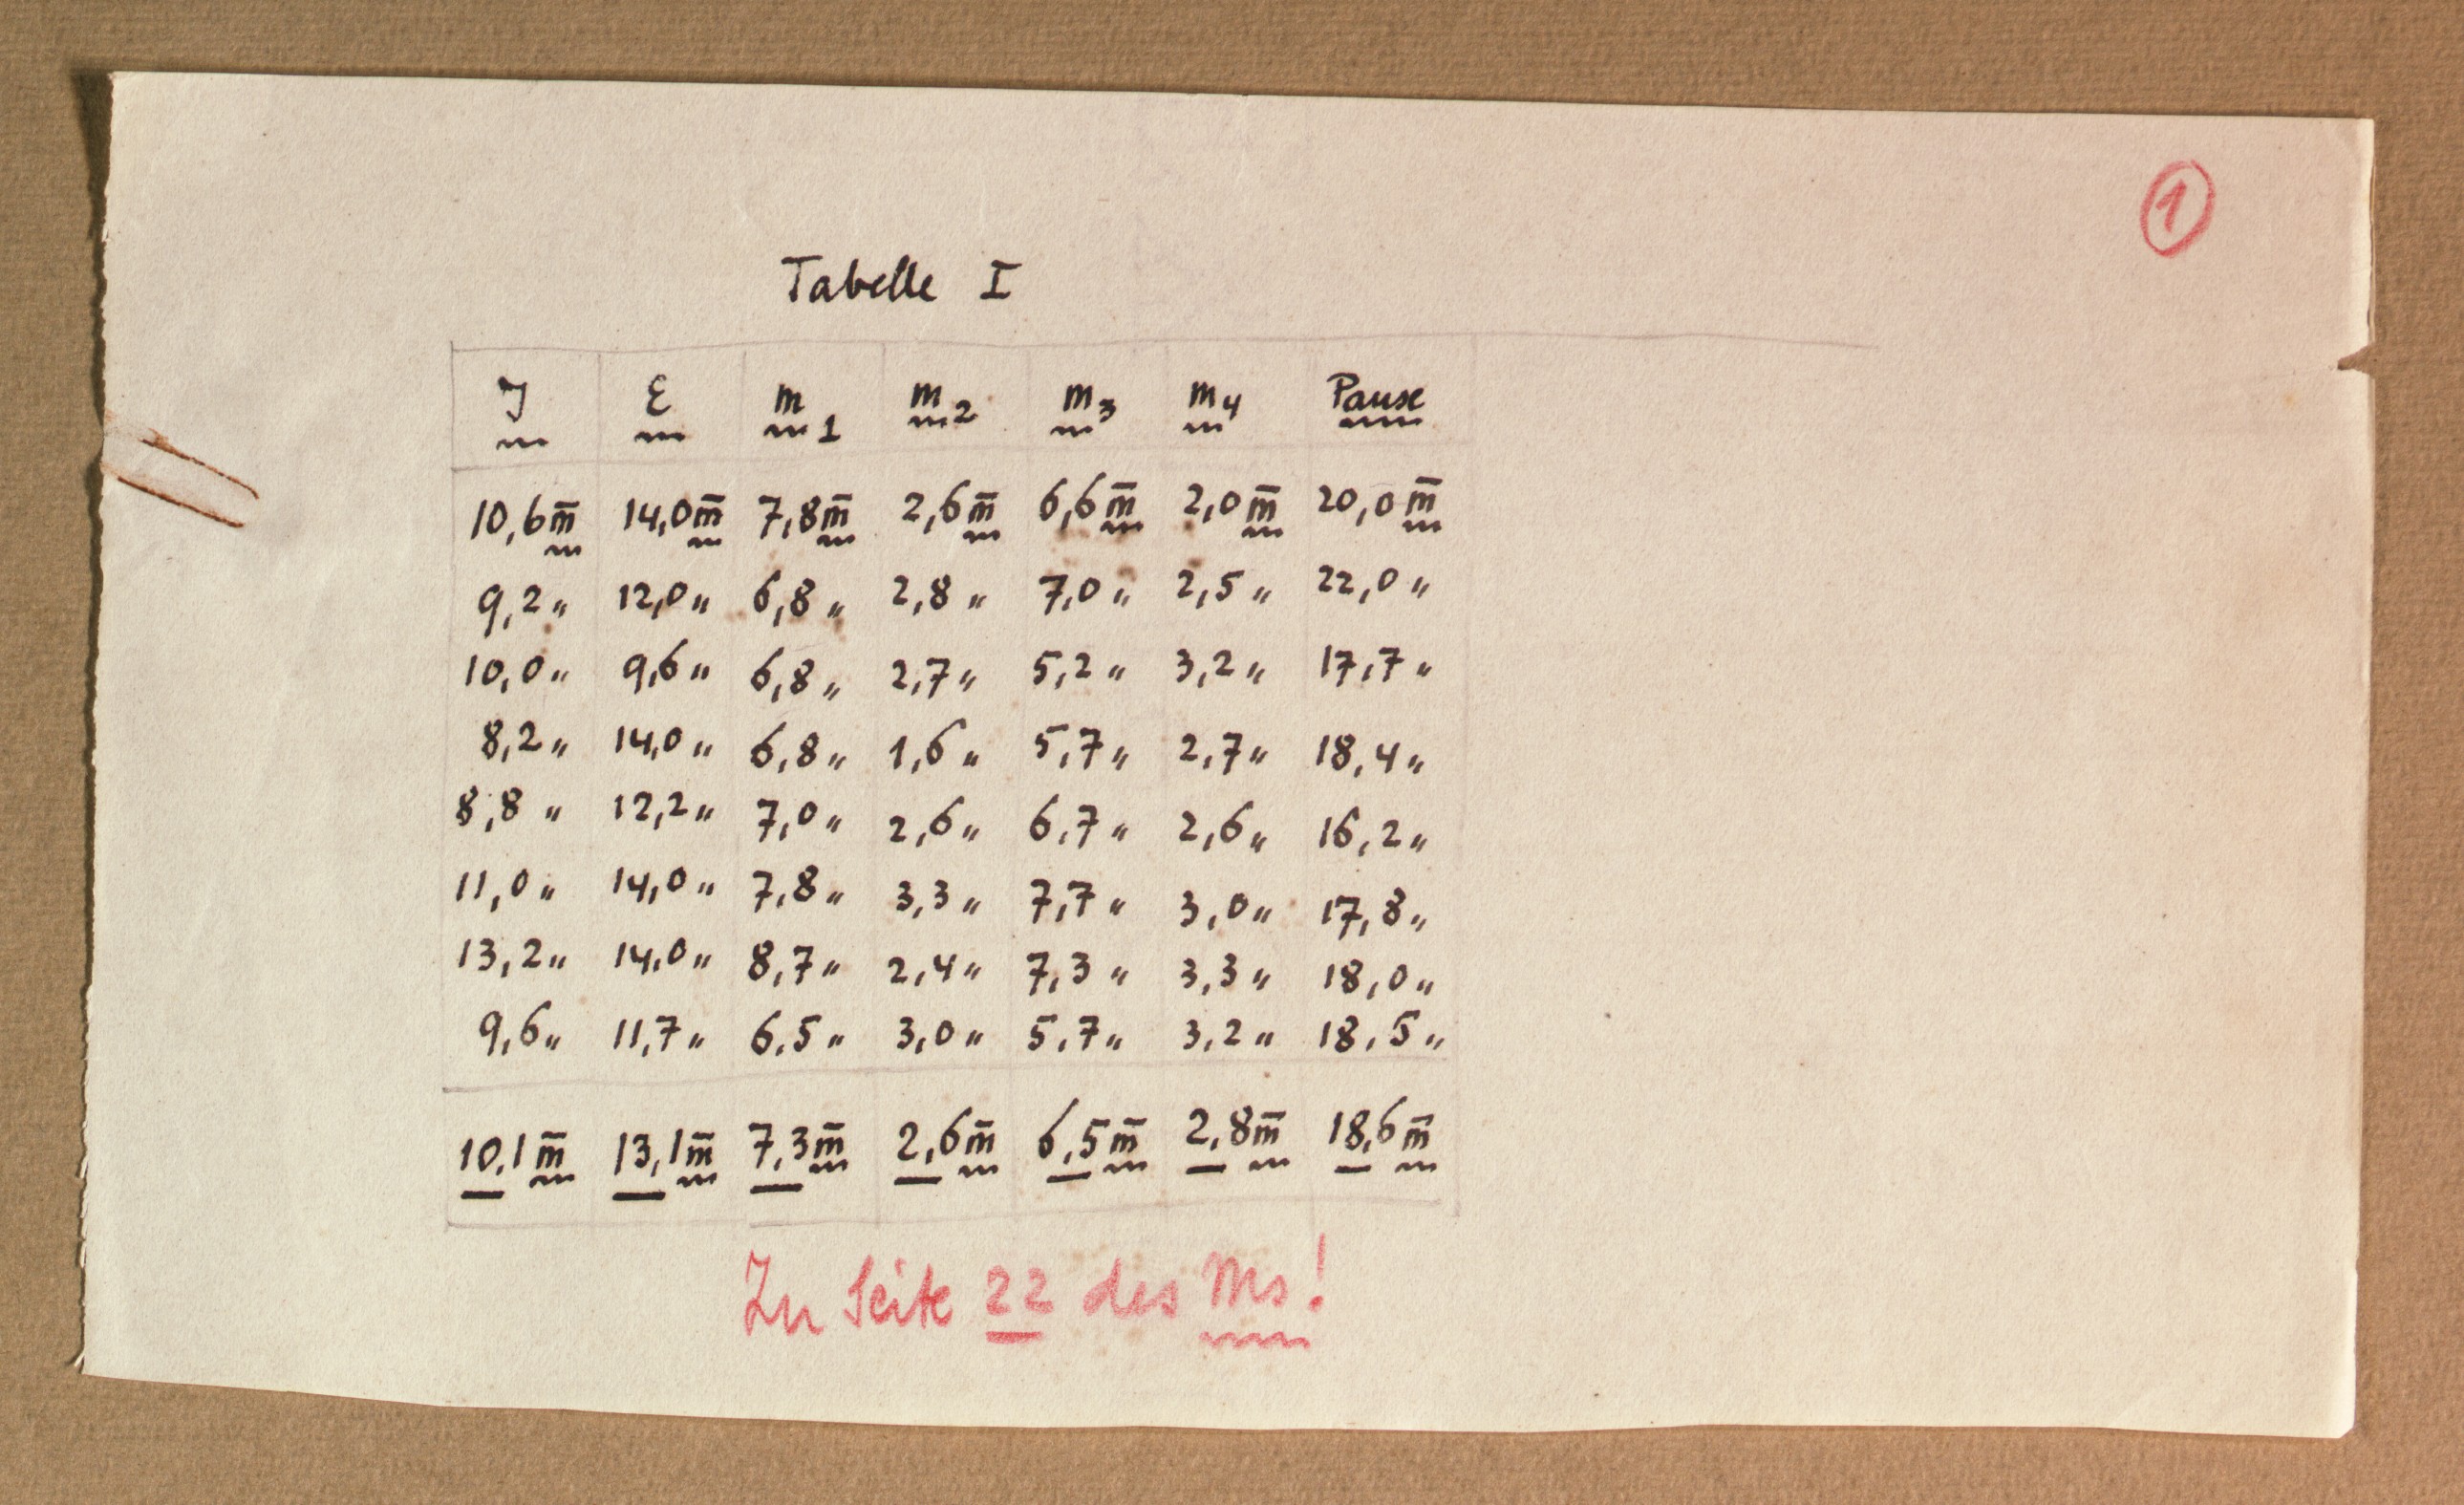 1
Tabelle I
J E m1 m2 m3 m4 Pause
10,6 m̅ 14,0 m̅ 7,8 m̅ 2,6 m̅ 6,6 m̅ 2,0 m̅ 20,0 m̅
9,2 " 12,0 " 6,8 " 2,8 " 7,0 " 2,5 " 22,0 "
10,0 " 9,6 " 6,8 " 2,7 " 5,2 " 3,2 " 17,7 "
8,2 " 14,0 " 6,8 " 1,6 " 5,7 " 2,7 " 18,4 "
8,8 " 12,2 " 7,0 " 2,6 " 6,7 " 2,6 " 16,2 "
11,0 " 14,0 " 7,8 " 3,3 " 7,7 " 3,0 " 17,8 "
13,2 " 14,0 " 8,7 " 2,4 " 7,3 " 3,3 " 18,0 "
9,6 " 11,7 " 6,5 " 3,0 " 5,7 " 3,2 " 18,5 "
10,1 m̅ 13,1 m̅ 7,3 m̅ 2,6 m̅ 6,5 m̅ 2,8 m̅ 18,6 m̅
Zu Seite 22 des Ms!